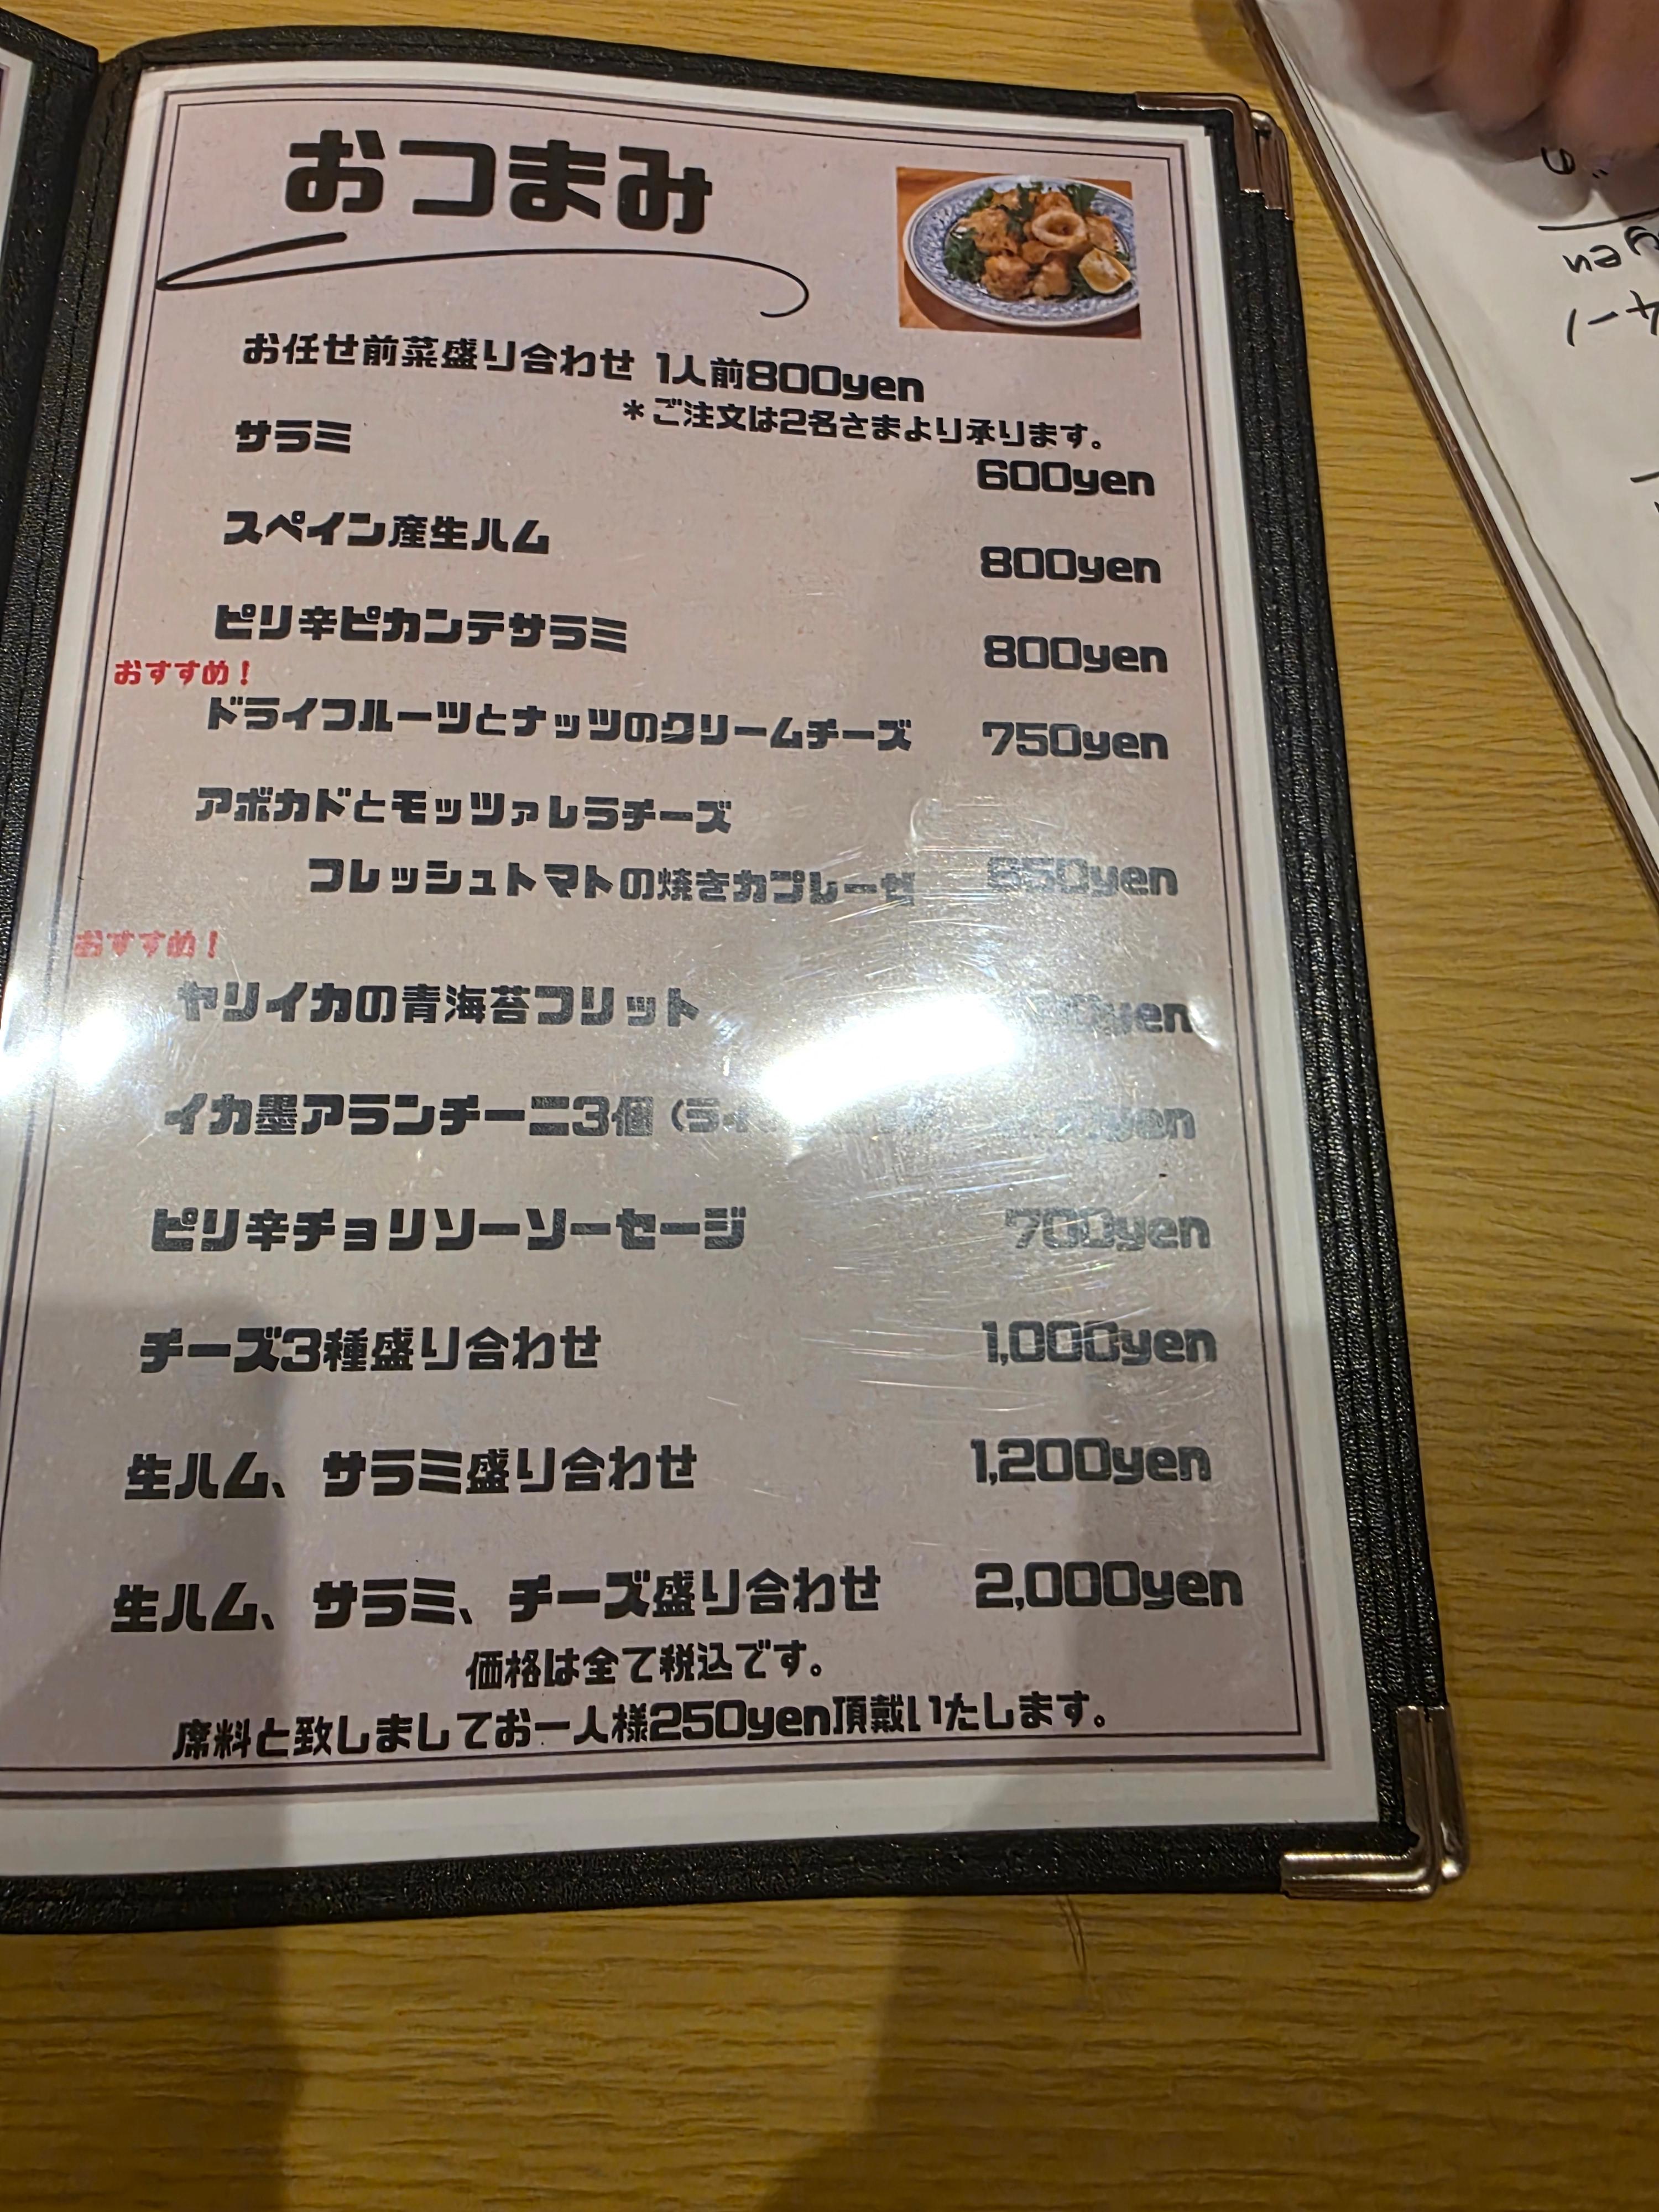 おつまみ
お任せ前菜盛り合わせ 1人前800yen
＊ご注文は2名さまより承ります。
サラミ 600yen
スペイン産生ハム 800yen
ピリ辛ピカンテサラミ 800yen
おすすめ！
ドライフルーツとナッツのクリームチーズ 750yen
アボカドとモッツァレラチーズ
フレッシュトマトの焼きカプレーゼ
おすすめ！
ヤリイカの青海苔フリット
イカ墨アランチーニ3個
ピリ辛チョリソーソーセージ 700yen
チーズ3種盛り合わせ 1,000yen
生ハム、サラミ盛り合わせ 1,200yen
生ハム、サラミ、チーズ盛り合わせ 2,000yen
価格は全て税込です。
席料と致しましてお一人様250yen頂戴いたします。